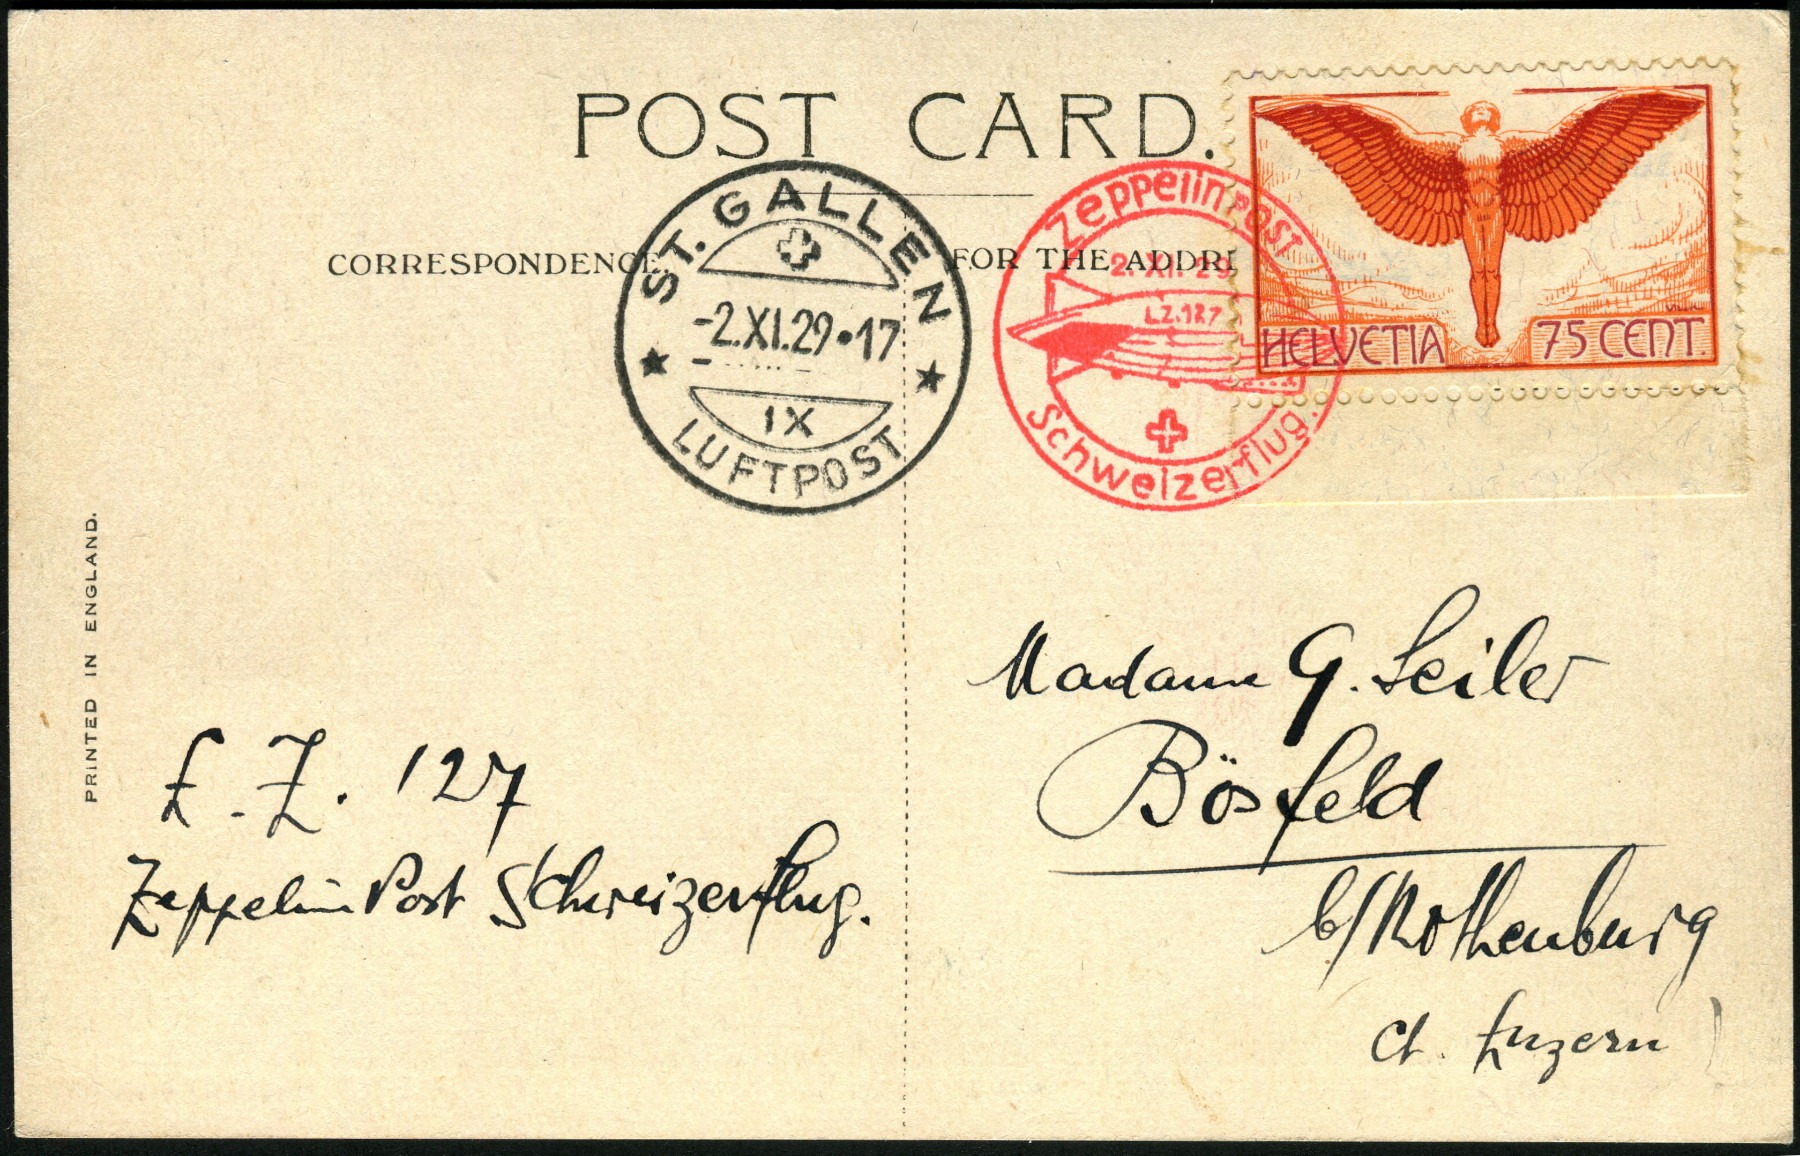 POST CARD.
CORRESPONDENCE.
FOR THE ADDRE
ST. GALLEN
-2.XI.29•17
IX
LUFTPOST
Zeppelin Post
2.XI.29
L.Z.127
Schweizerflug.
HELVETIA 75 CENT.
PRINTED IN ENGLAND.
L.Z. 127
Zeppelin Post Schweizerflug.
Madame G. Seiler
Bösfeld
b/Rothenburg
Ct. Luzern